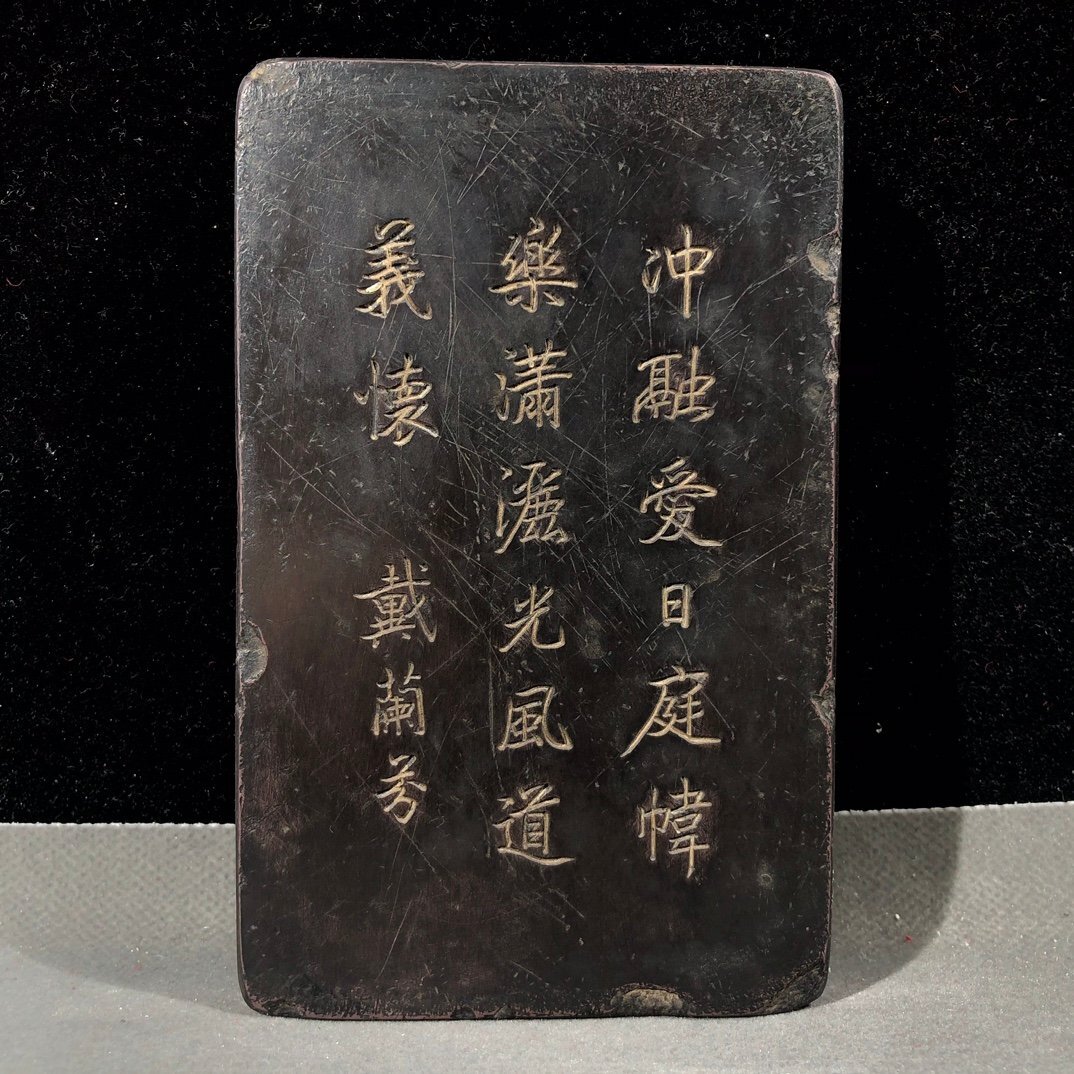 冲融愛日庭幃
樂瀟灑光風道
義懷 戴蘭芳